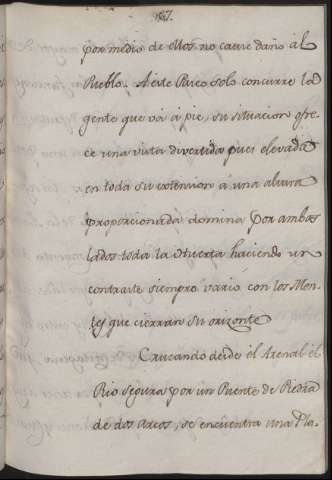 187.
por medio de ellos no cause daño al
Pueblo. A este Paseo solo concurre la
gente que vá à pie, su situacion ofre-
ce una vista divertida pues elevada
en toda su extension à una altura
proporcionada domina por ambos
lados toda la Huerta haciendo un
contraste siempre vario con los Mon-
tes que cierran su orizonte
Cruzando desde el Arenal el
Rio segura por un Puente de Piedra
de dos Arcos, se encuentra una Pla-